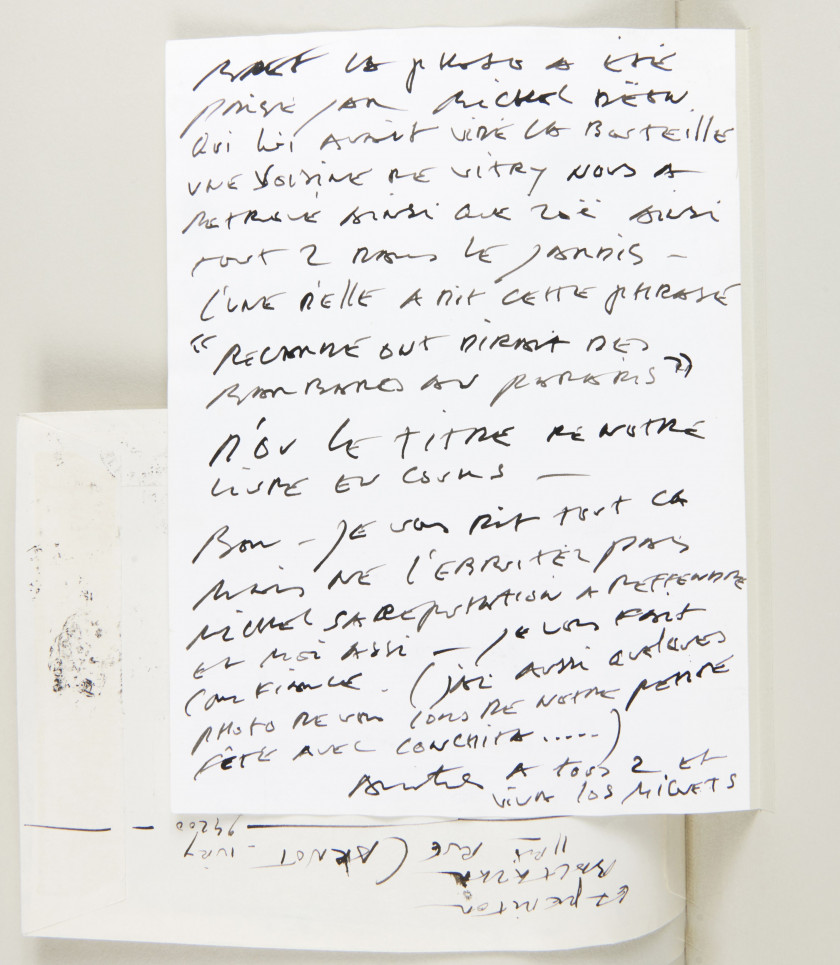 BREF LA PHOTO A ÉTÉ
PRISE PAR MICHEL DÉON
QUI LUI AVAIT VIDÉ LA BOUTEILLE
UNE VOISINE DE VITRY NOUS A
RETROUVÉ AINSI QUE ZOË AINSI
TOUT 2 DANS LE JARDIN —
L'UNE D'ELLE A DIT CETTE PHRASE
"REGARDE ONT DIRAIT DES
BARBARES AU PARADIS"
D'OU LE TITRE DE NOTRE
LIVRE EN COURS —
BON — JE VOUS DIT TOUT CA
MAIS NE L'EBRUITEZ PAS
MICHEL SA REPUTATION A DEFFENDRE
ET MOI ASSI — JE VOUS FAIT
CONFIANCE. (J'AI AUSSI QUELQUES
PHOTO DE VOUS LORS DE NOTRE PETITE
FÊTE AVEC CONCHITA .....)
A TOUS 2 ET
VIVA LOS MIGUETS
EXPEDITON
BALTAZAR
RUE CARNOT — IVRY
94200